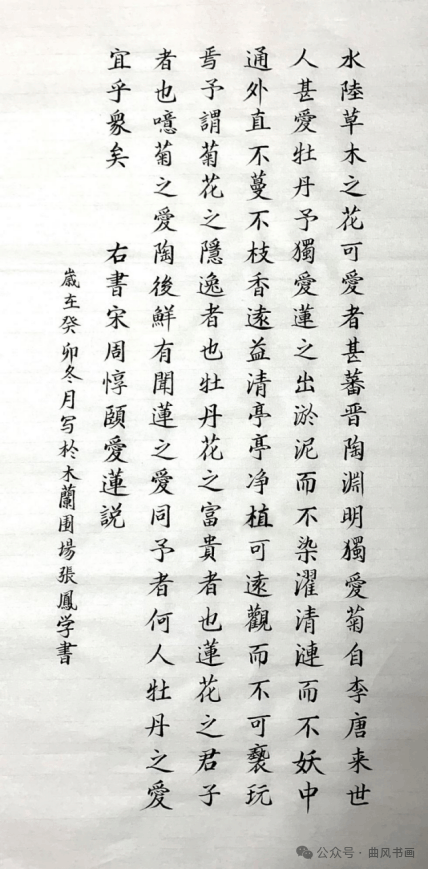 水陸草木之花可愛者甚蕃晋陶淵明獨愛菊自李唐来世
人甚愛牡丹予獨愛蓮之出淤泥而不染濯清漣而不妖中
通外直不蔓不枝香遠益清亭亭净植可遠觀而不可褻玩
焉予謂菊花之隱逸者也牡丹花之富貴者也蓮花之君子
者也噫菊之愛陶後鮮有聞蓮之愛同予者何人牡丹之愛
宜乎衆矣 右書宋周惇頤愛蓮説
歲在癸卯冬月写於木蘭围場張鳳学書
公众号·曲风书画